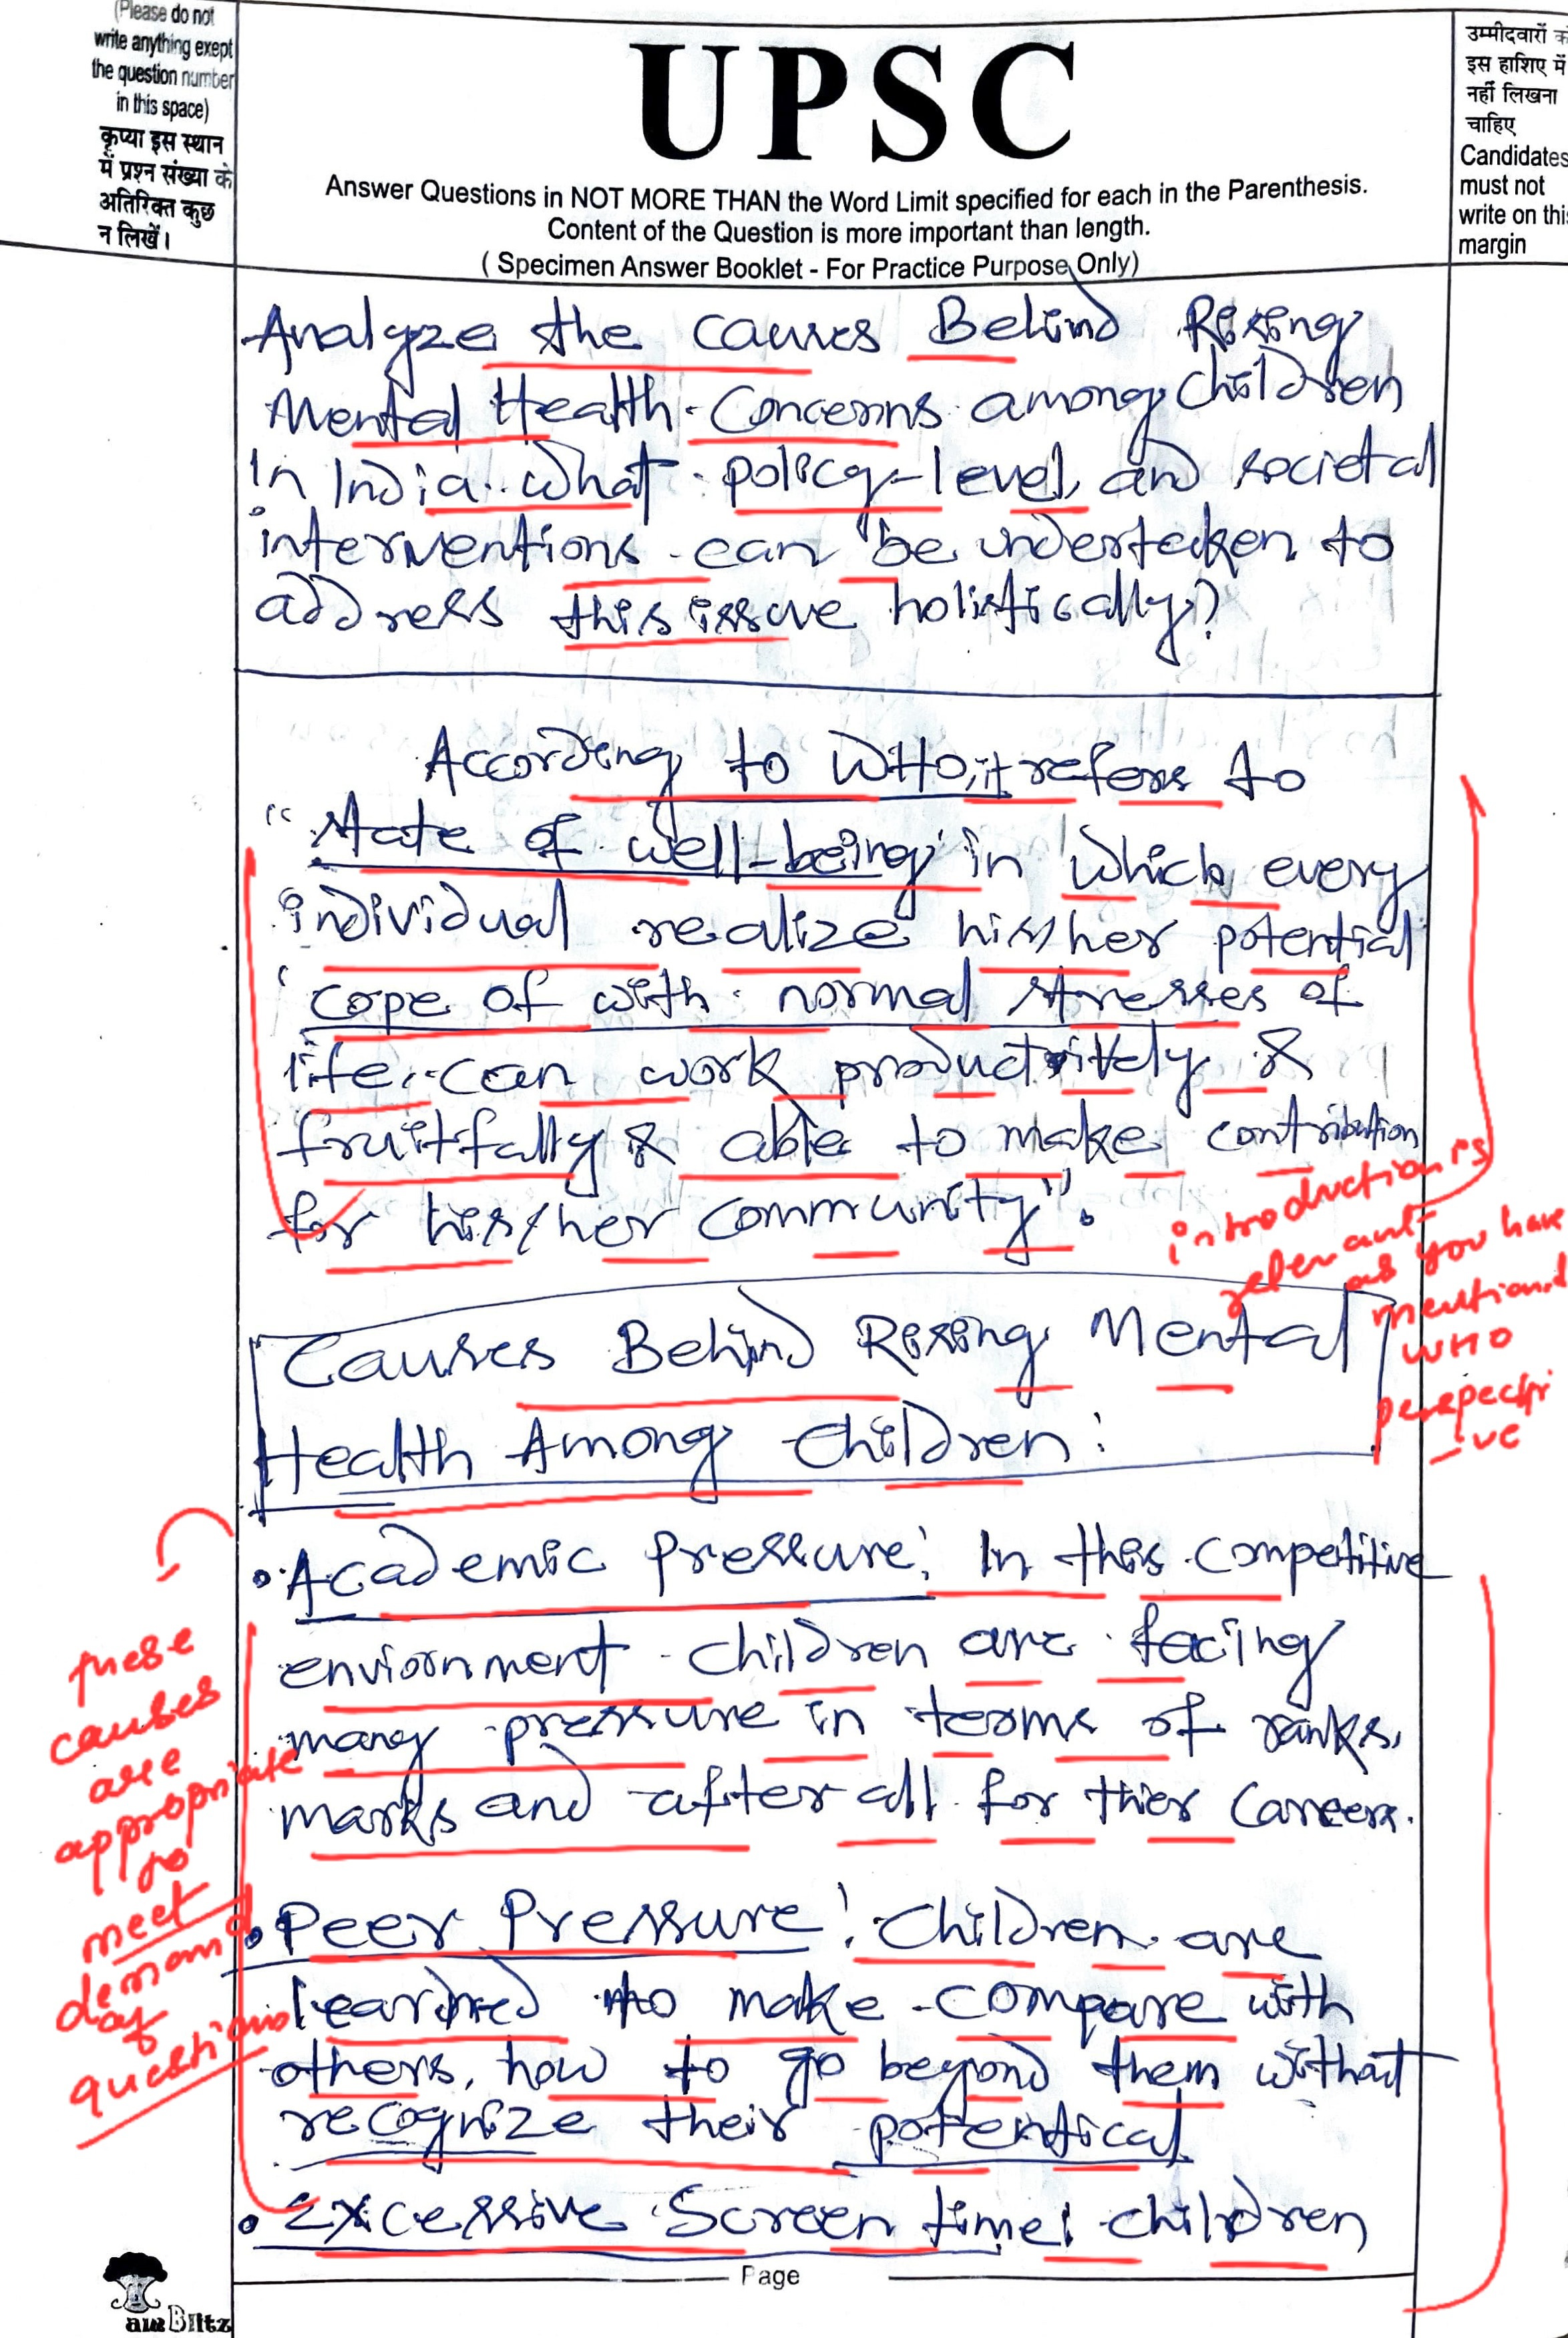 (Please do not
write anything exept
the question number
in this space)
कृप्या इस स्थान
में प्रश्न संख्या के
अतिरिक्त कुछ
न लिखें।
UPSC
Answer Questions in NOT MORE THAN the Word Limit specified for each in the Parenthesis.
Content of the Question is more important than length.
( Specimen Answer Booklet - For Practice Purpose Only)
उम्मीदवारों
इस हाशिए में
नहीं लिखना
चाहिए
Candidates
must not
write on this
margin
Analyze the causes Behind Rising
Mental Health Concerns among children
in India. what policy-level and societal
interventions can be undertaken to
address this issue holistically?
According to WHO, it refers to
"State of well-being in which every
individual realize his/her potential
cope of with normal stresses of
life. can work productively &
fruitfally & able to make contribution
for his/her community".
introduction is
relevant
as you have
mentioned
WHO
perspecti
-ve
Causes Behind Rising Mental
Health Among Children:
• Academic Pressure: In this competitive
enviornment children are facing
many pressure in terms of ranks,
marks and after all for thier Careers.
these
causes
are
appropriate
to
meet
demand
of
questions
• Peer Pressure: Children are
learned to make compare with
others, how to go beyond them without
recognize their potentical
• Excessive Screen time: children
Page